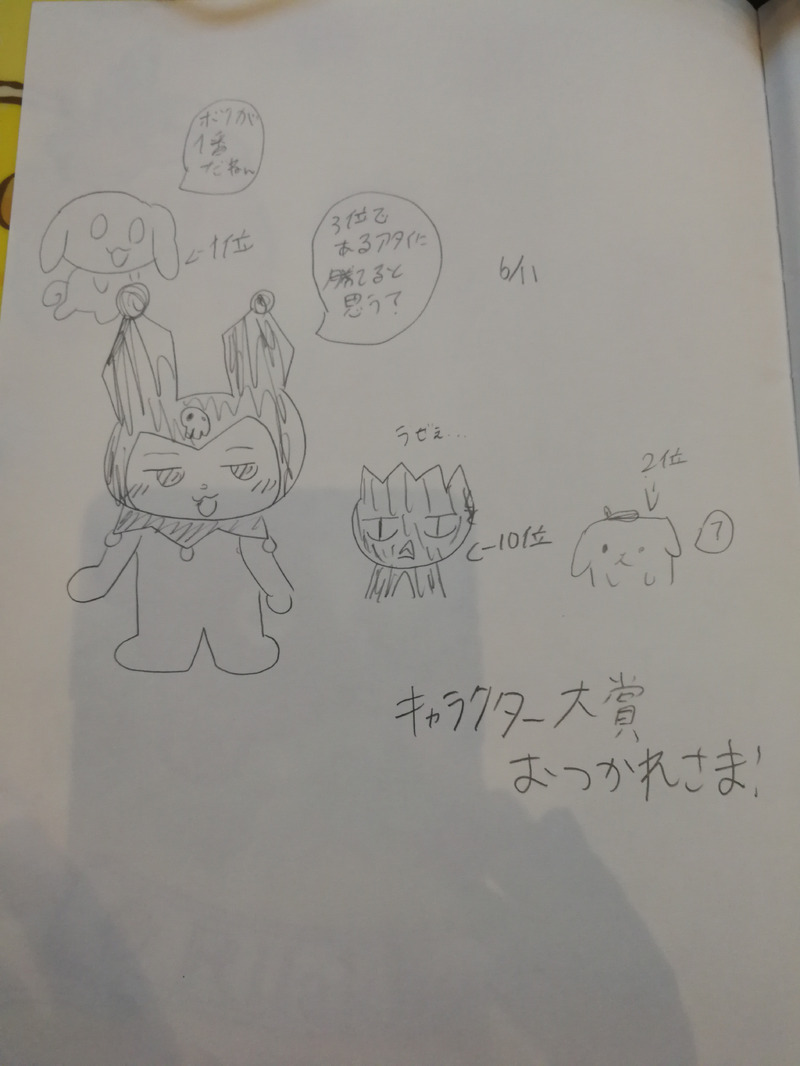 ボクが
1番
だねん
←1位
3位で
あるアタイに
勝てると
思う?
6/11
うぜぇ…
←10位
2位
↓
7
キャラクター大賞
おつかれさま!